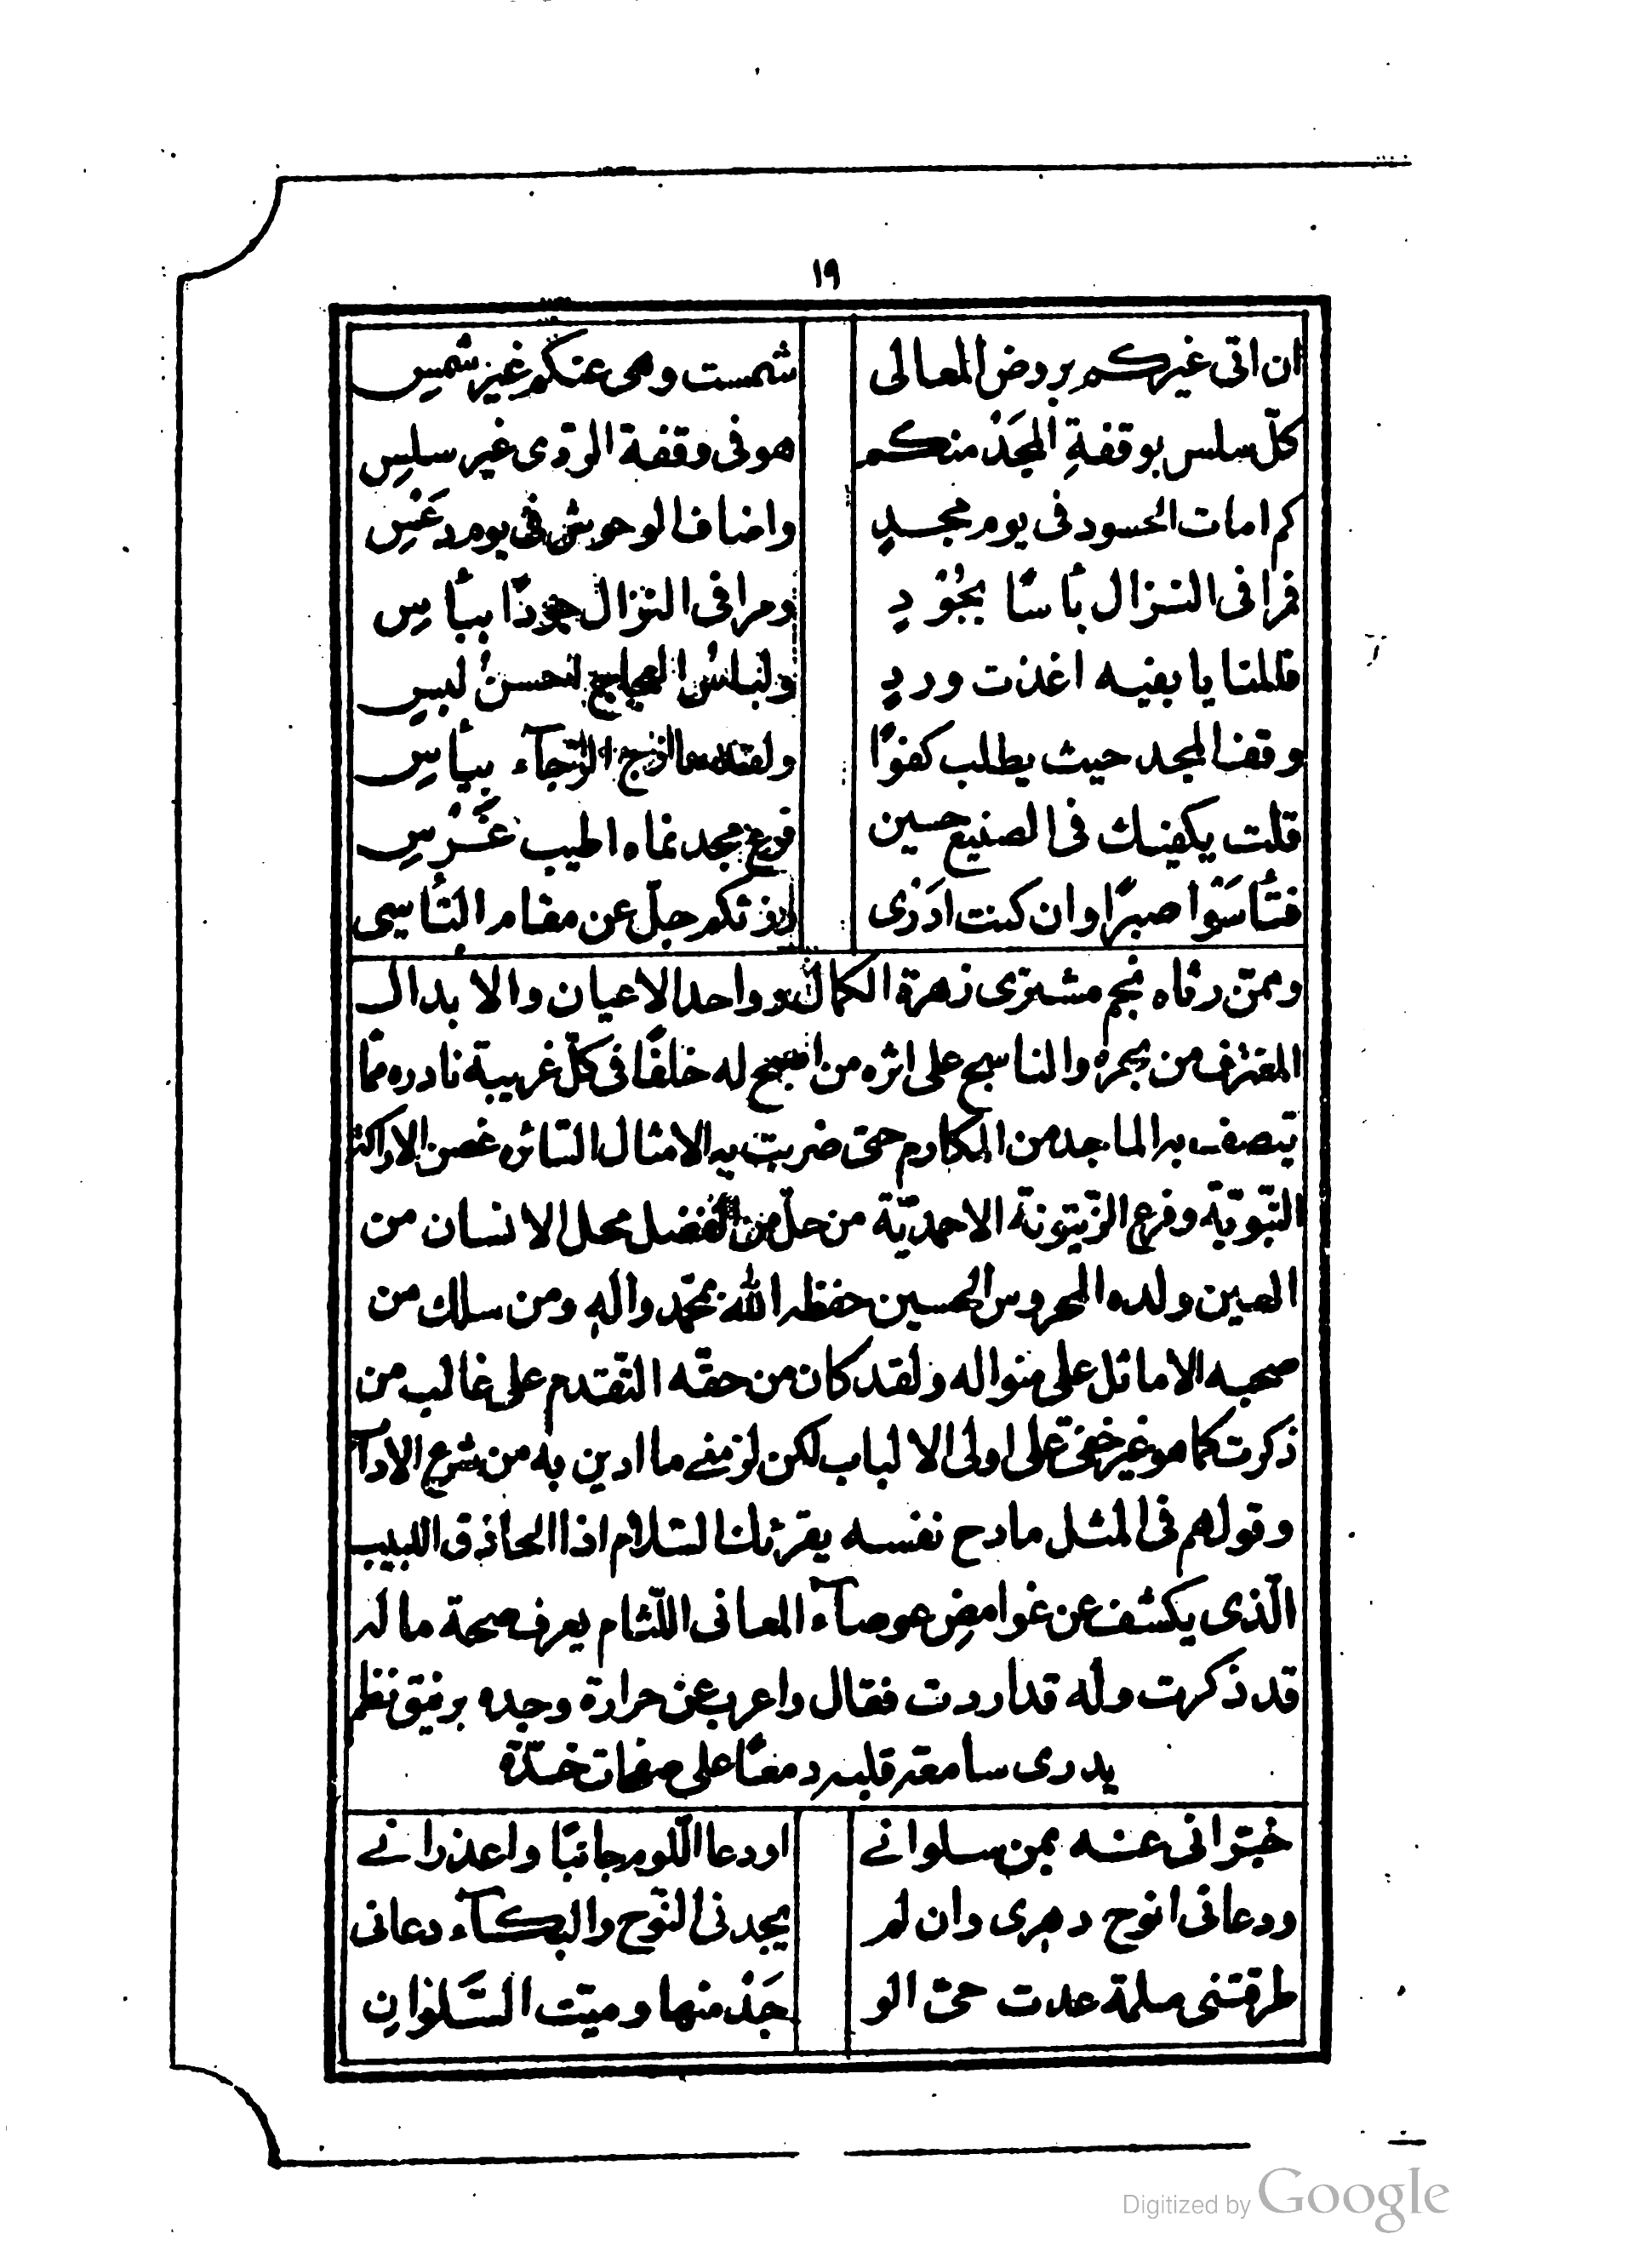 ١٩
ان اتى غيركم بروض المعالى شمست وهى عنكم غير شمس
كلّ سلس بوقفةِ المجَدْ منكم هو فى وقفة الردى غير سلس
كم امات الحسود فى يوم مجدٍ واضاف الوحوش فى يوم دعَسْ
فرا فى النزال بأسًا بجُوْدٍ ومرا فى النزال جودًا ببأس
قللنا يا بغيه اغذت وردٍ ولباسُ لحسنُ لبس
وقفنا لمجد حيث يطلب كفوًا الرّجآء بيأس
قلت يكفيك فى الصنيع حسين فرع مجد نماه اطيب غَرْسِ
فتأسَوْا صبرًا وان كنت ادَرْى رزئكم جلّ عن مقام التأسى
وممّن رثاه نجم مشترى زهرة الكمال وواحد الاعيان والابدال
المغترف من بحره والناسج على اثره من اصبح له خلفًا فى كلّ غريبة نادره ممّا
تيصف به الماجد من المكارم حتى ضربت به الامثال السائره غصن الاراكة
النّبويّة وفرع الزّيتونة الاحمديّة من حلّ من الفضل محل الانسان من
العين ولده المحروس الحسين حفظه الله بمحمّد وآله ومن سلك من
صحبه الاماثل على منواله ولقد كان من حقّه التّقدم على غالب من
ذكرت كما هو غير خفىّ على اولى الالباب لكن لزمنے ما ادين به من شرع الادآ
وقولهم فى المثل مادح نفسه يقرئك السّلام اذا الحاذق اللبيب
الّذى يكشف عن غوامض عوصآء المعانى اللّثام يعرف صحة ما له
قد ذكرت وله قد اردت فقال واعرب عن حرارة وجده برقيق نظم
يدرى سامعه قلبه دمعًا على صفحات خدّه
خبّرانى عنه بمن سلوانے اودعا اللّوم جانبًا واعذرانے
ودعانى انوح دهرى وان لم يجدنى النّوح والبكآء دعانى
طرقتنى ملمة عدت حىّ الو جَدْ منها وميّت السّلوْانِ
Digitized by Google